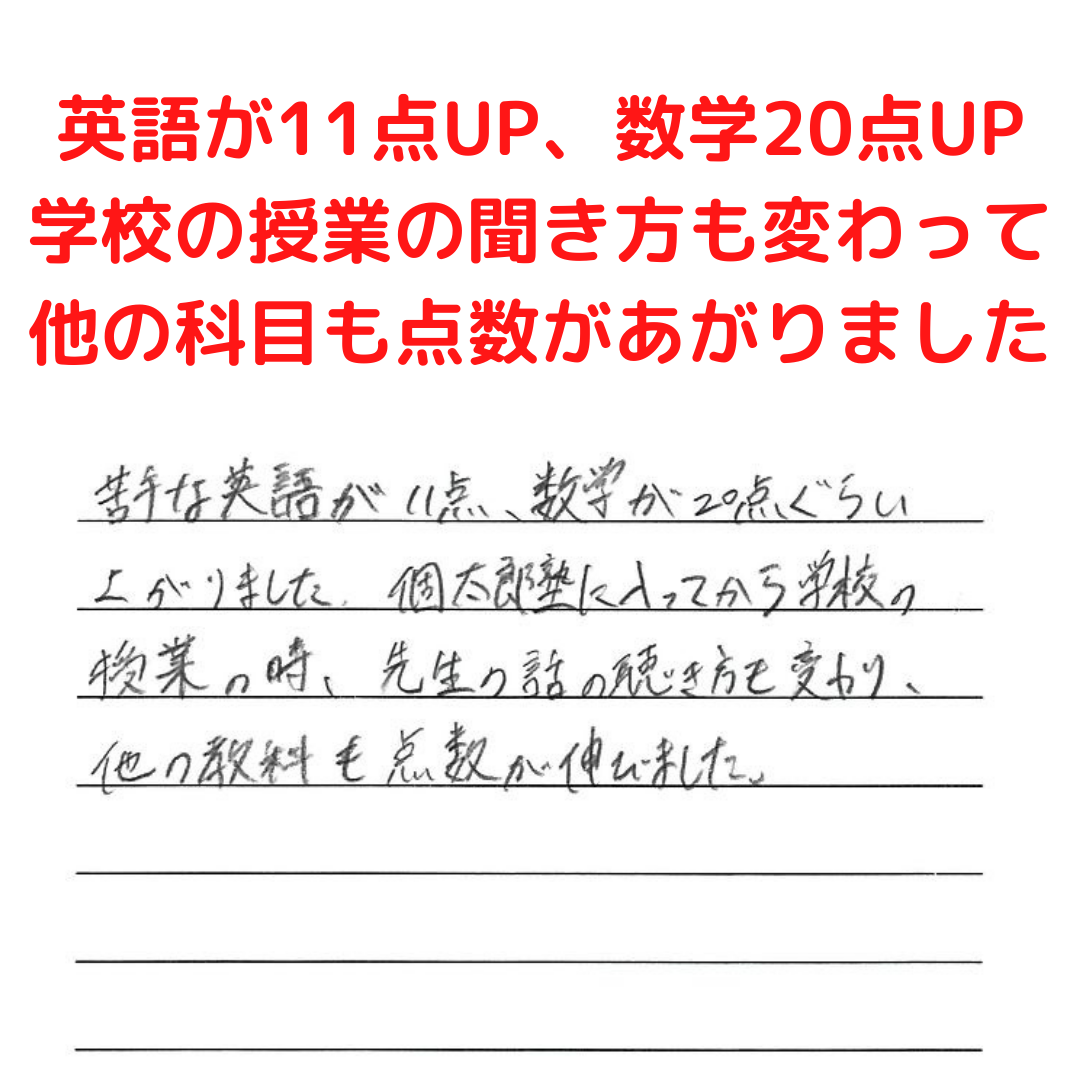 英語が11点UP、数学20点UP
学校の授業の聞き方も変わって
他の科目も点数があがりました
苦手な英語が11点、数学が20点ぐらい
上がりました。個太郎塾に入ってから学校の
授業の時、先生の話の聴き方も変わり、
他の教科も点数が伸びました。